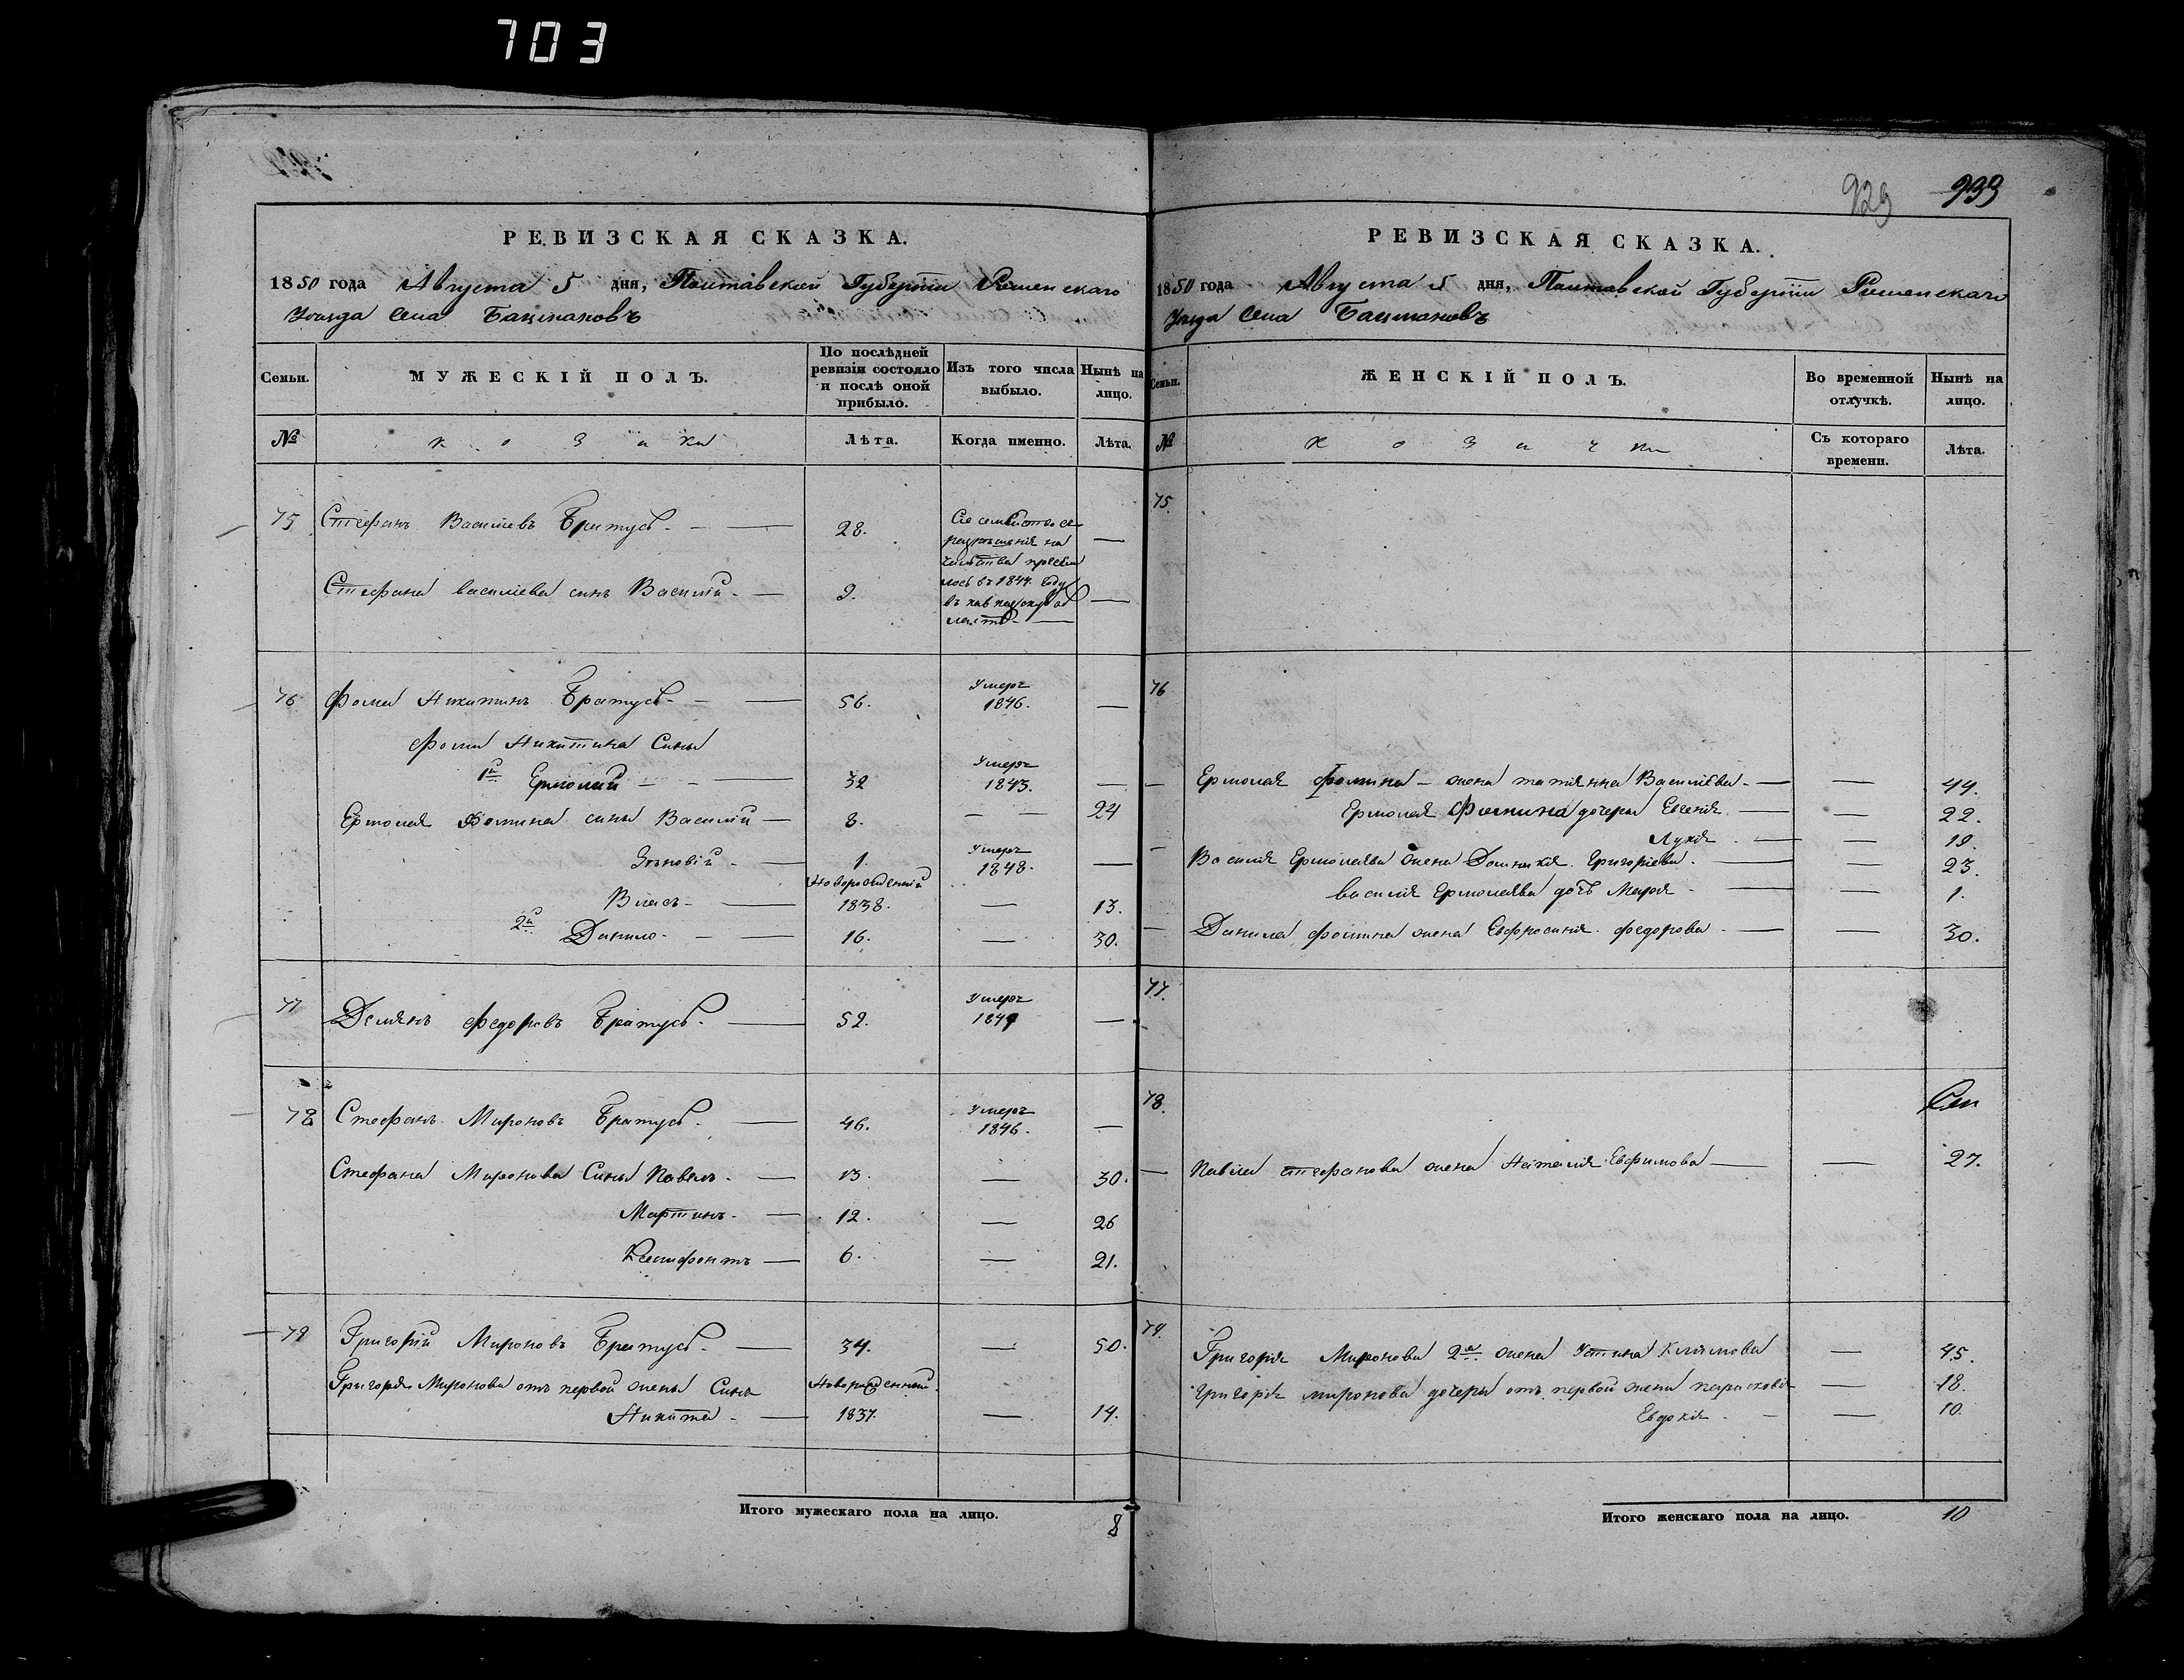 703
РЕВИЗСКАЯ СКАЗКА.
1850 года Августа 5 дня, Полтавской Губерніи Роменскаго
Уѣзда Села Бацмановъ
Семьи.
МУЖЕСКІЙ ПОЛЪ.
По послѣдней ревизіи состояло и послѣ оной прибыло.
Изъ того числа выбыло.
Нынѣ на лицо.
№
козаки
Лѣта.
Когда именно.
Лѣта.
75 Стефанъ Василіевъ Братусь. — 28. —
Сіе семейство съ
разрѣшенія на
чальства пресели
лось въ 1844. году
въ кавказскую об
ласть —
Стефана василіева сынъ Василій. — 9. —
76 Фома Никитинъ Братусь. — 56. Умеръ 1846. —
Фомы Никитина Сины
1й Ермолай — 32 Умеръ 1843. —
Ермолая Фомина сины Василій — 8. — 24
Зѣновій — 1. Умеръ 1848. —
Власъ — Новорожденный 1838. — 13.
2й Данило. — 16. — 30.
77 Демянъ Федоровъ Братусь. — 52. Умеръ 1849 —
78 Стефанъ Мироновъ Братусь. — 46. Умеръ 1846. —
Стефана Миронова Сины Павелъ. — 13. — 30.
Мартинъ. — 12. — 26
Ксенифонтъ — 6. — 21.
79 Григорій Мироновъ Братусь. — 34. — 50.
Григорія Миронова отъ первой жены Синъ Новорожденный
Никита. — 1837. — 14.
Итого мужескаго пола на лицо. 8
929 933
РЕВИЗСКАЯ СКАЗКА.
1850 года Августа 5 дня, Полтавской Губерніи Роменскаго
Уѣзда Села Бацмановъ
Семьи.
ЖЕНСКІЙ ПОЛЪ.
Во временной отлучкѣ.
Нынѣ на лицо.
№
козачки
Съ котораго времени.
Лѣта.
75.
76
Ермолая Фомина — жена татіянна Василіева — — 44.
Ермолая Фомина дочеры Евгенія. — — 22.
Лукія — — 19.
Василія Ермолаева жена Домникія Григоріева. — — 23.
василія Ермолаева дочь Марія — — 1.
Данила фомина жена Евфросинія федорова. — — 30.
77.
78.
Павла стефанова жена Наталія Евфимова — — 27.
79.
Григорія Миронова 2я жена Устина Климова — 45.
григорія миронова дочеры отъ первой жены параскева — 18.
Евдокія. — — 10.
Итого женскаго пола на лицо. 10